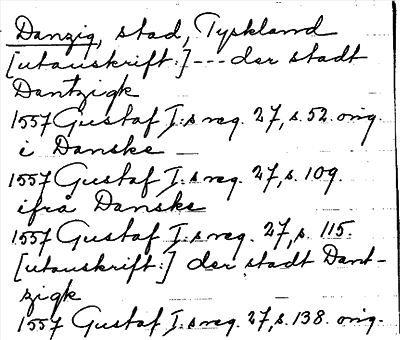 Danzig, stad, Tyskland
[utanskrift:] --- der stadt
Dantzigk
1557 Gustaf I:s reg. 27, s. 52. orig.
i Danske —
1557 Gustaf I:s reg. 27, s. 109.
ifrå Danske
1557 Gustaf I:s reg. 27, s. 115.
[utanskrift:] der stadt Dant-
zigk
1557 Gustaf I:s reg. 27, s. 138. orig.